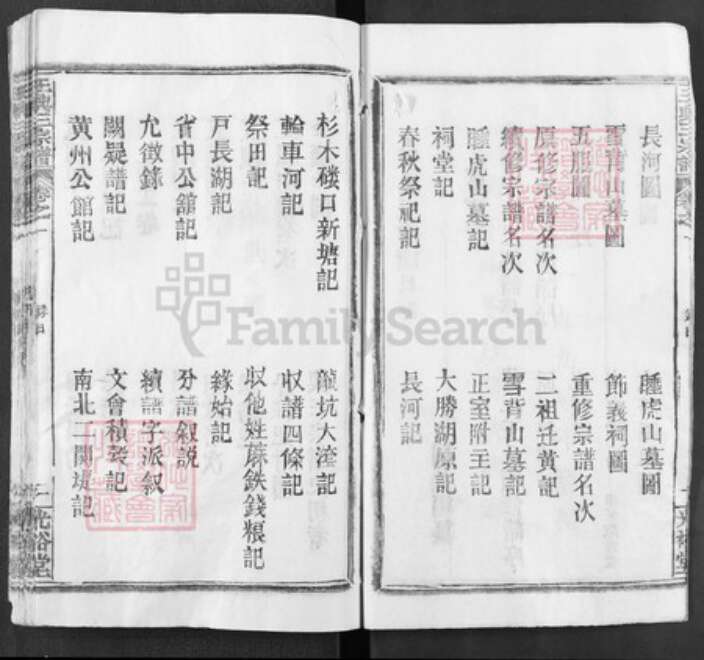 長河圖
睡虎山墓圖
雪背山墓圖
節義祠圖
五服圖
重修宗譜名次
原修宗譜名次
二祖迁黄記
續修宗譜名次
雪背山墓記
睡虎山墓記
正室附主記
祠堂記
大勝湖原記
春秋祭祀記
長河記
杉木磏口新塘記
輪車河記
收譜四條記
祭田記
収他姓蔴鉄錢粮記
戸長湖記
緣始記
省中公舘記
分譜叙説
允徵錄
續譜字派叙
闕疑譜記
文會積榮記
黄州公館記
光裕堂
FamilySearch